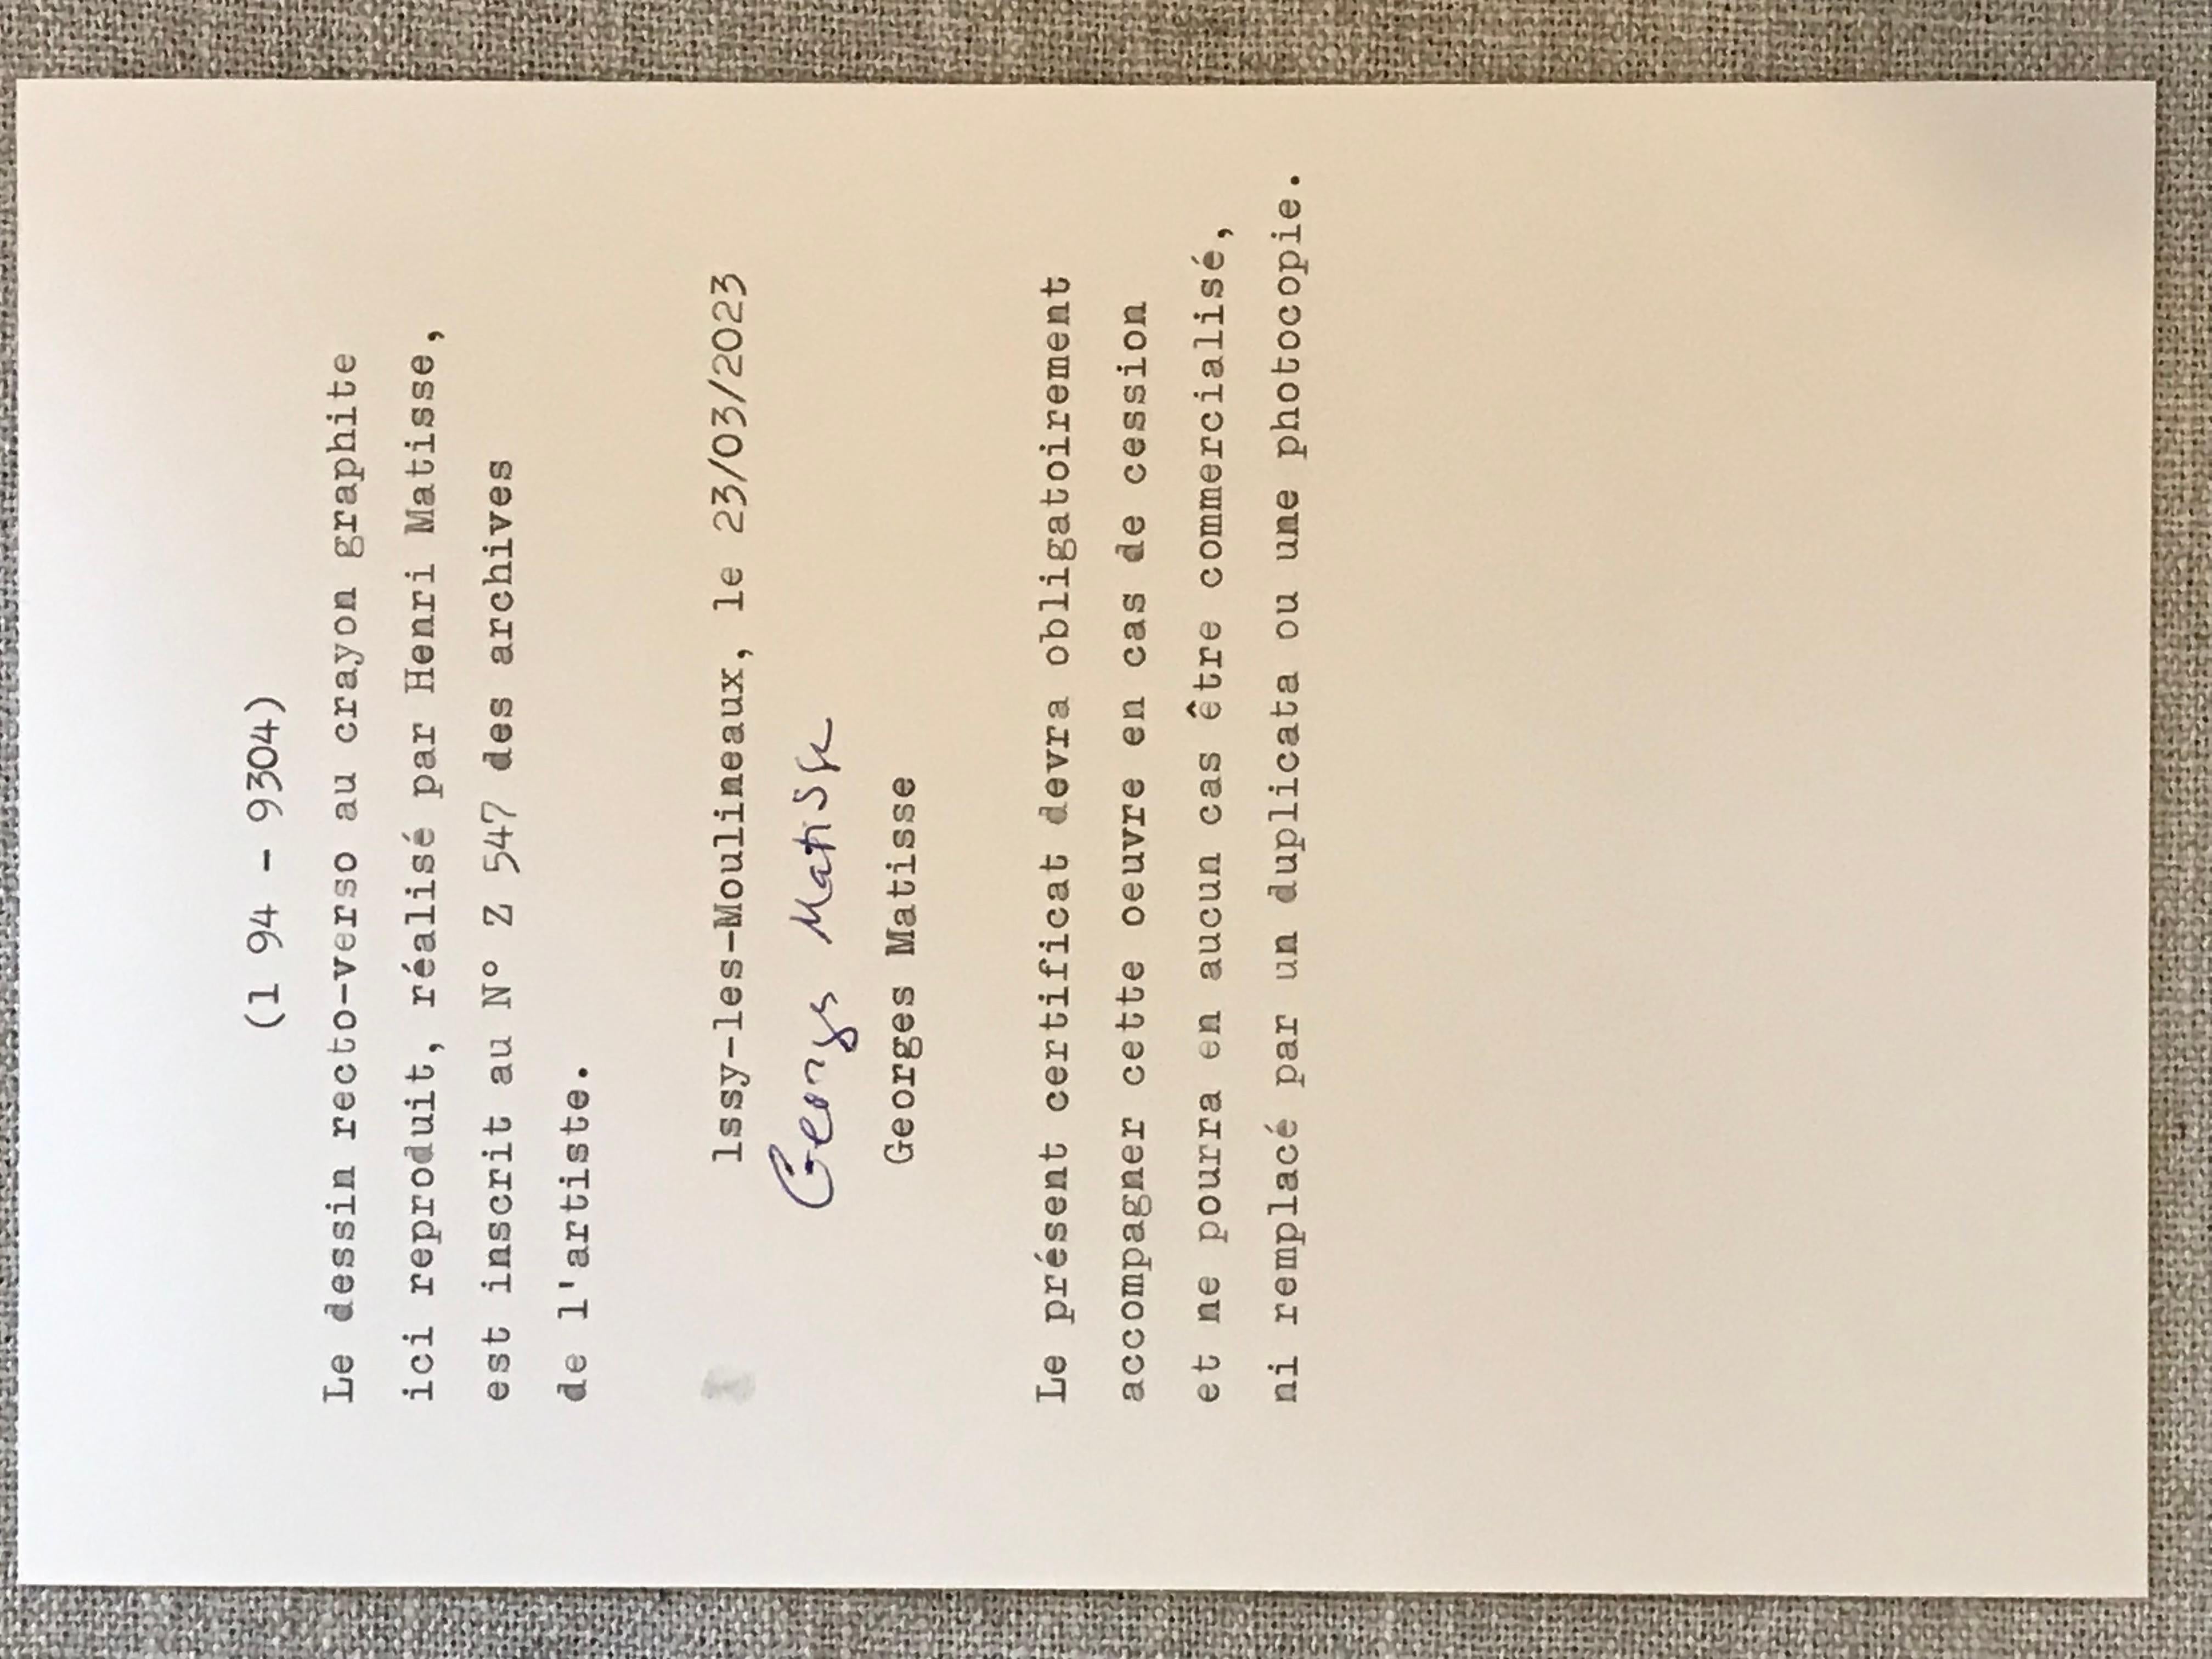 (1 94 - 9304)
Le dessin recto-verso au crayon graphite
ici reproduit, réalisé par Henri Matisse,
est inscrit au N° Z 547 des archives
de l'artiste.
lssy-les-Moulineaux, le 23/03/2023
Georges Matisse
Georges Matisse
Le présent certificat devra obligatoirement
accompagner cette oeuvre en cas de cession
et ne pourra en aucun cas être commercialisé,
ni remplacé par un duplicata ou une photocopie.